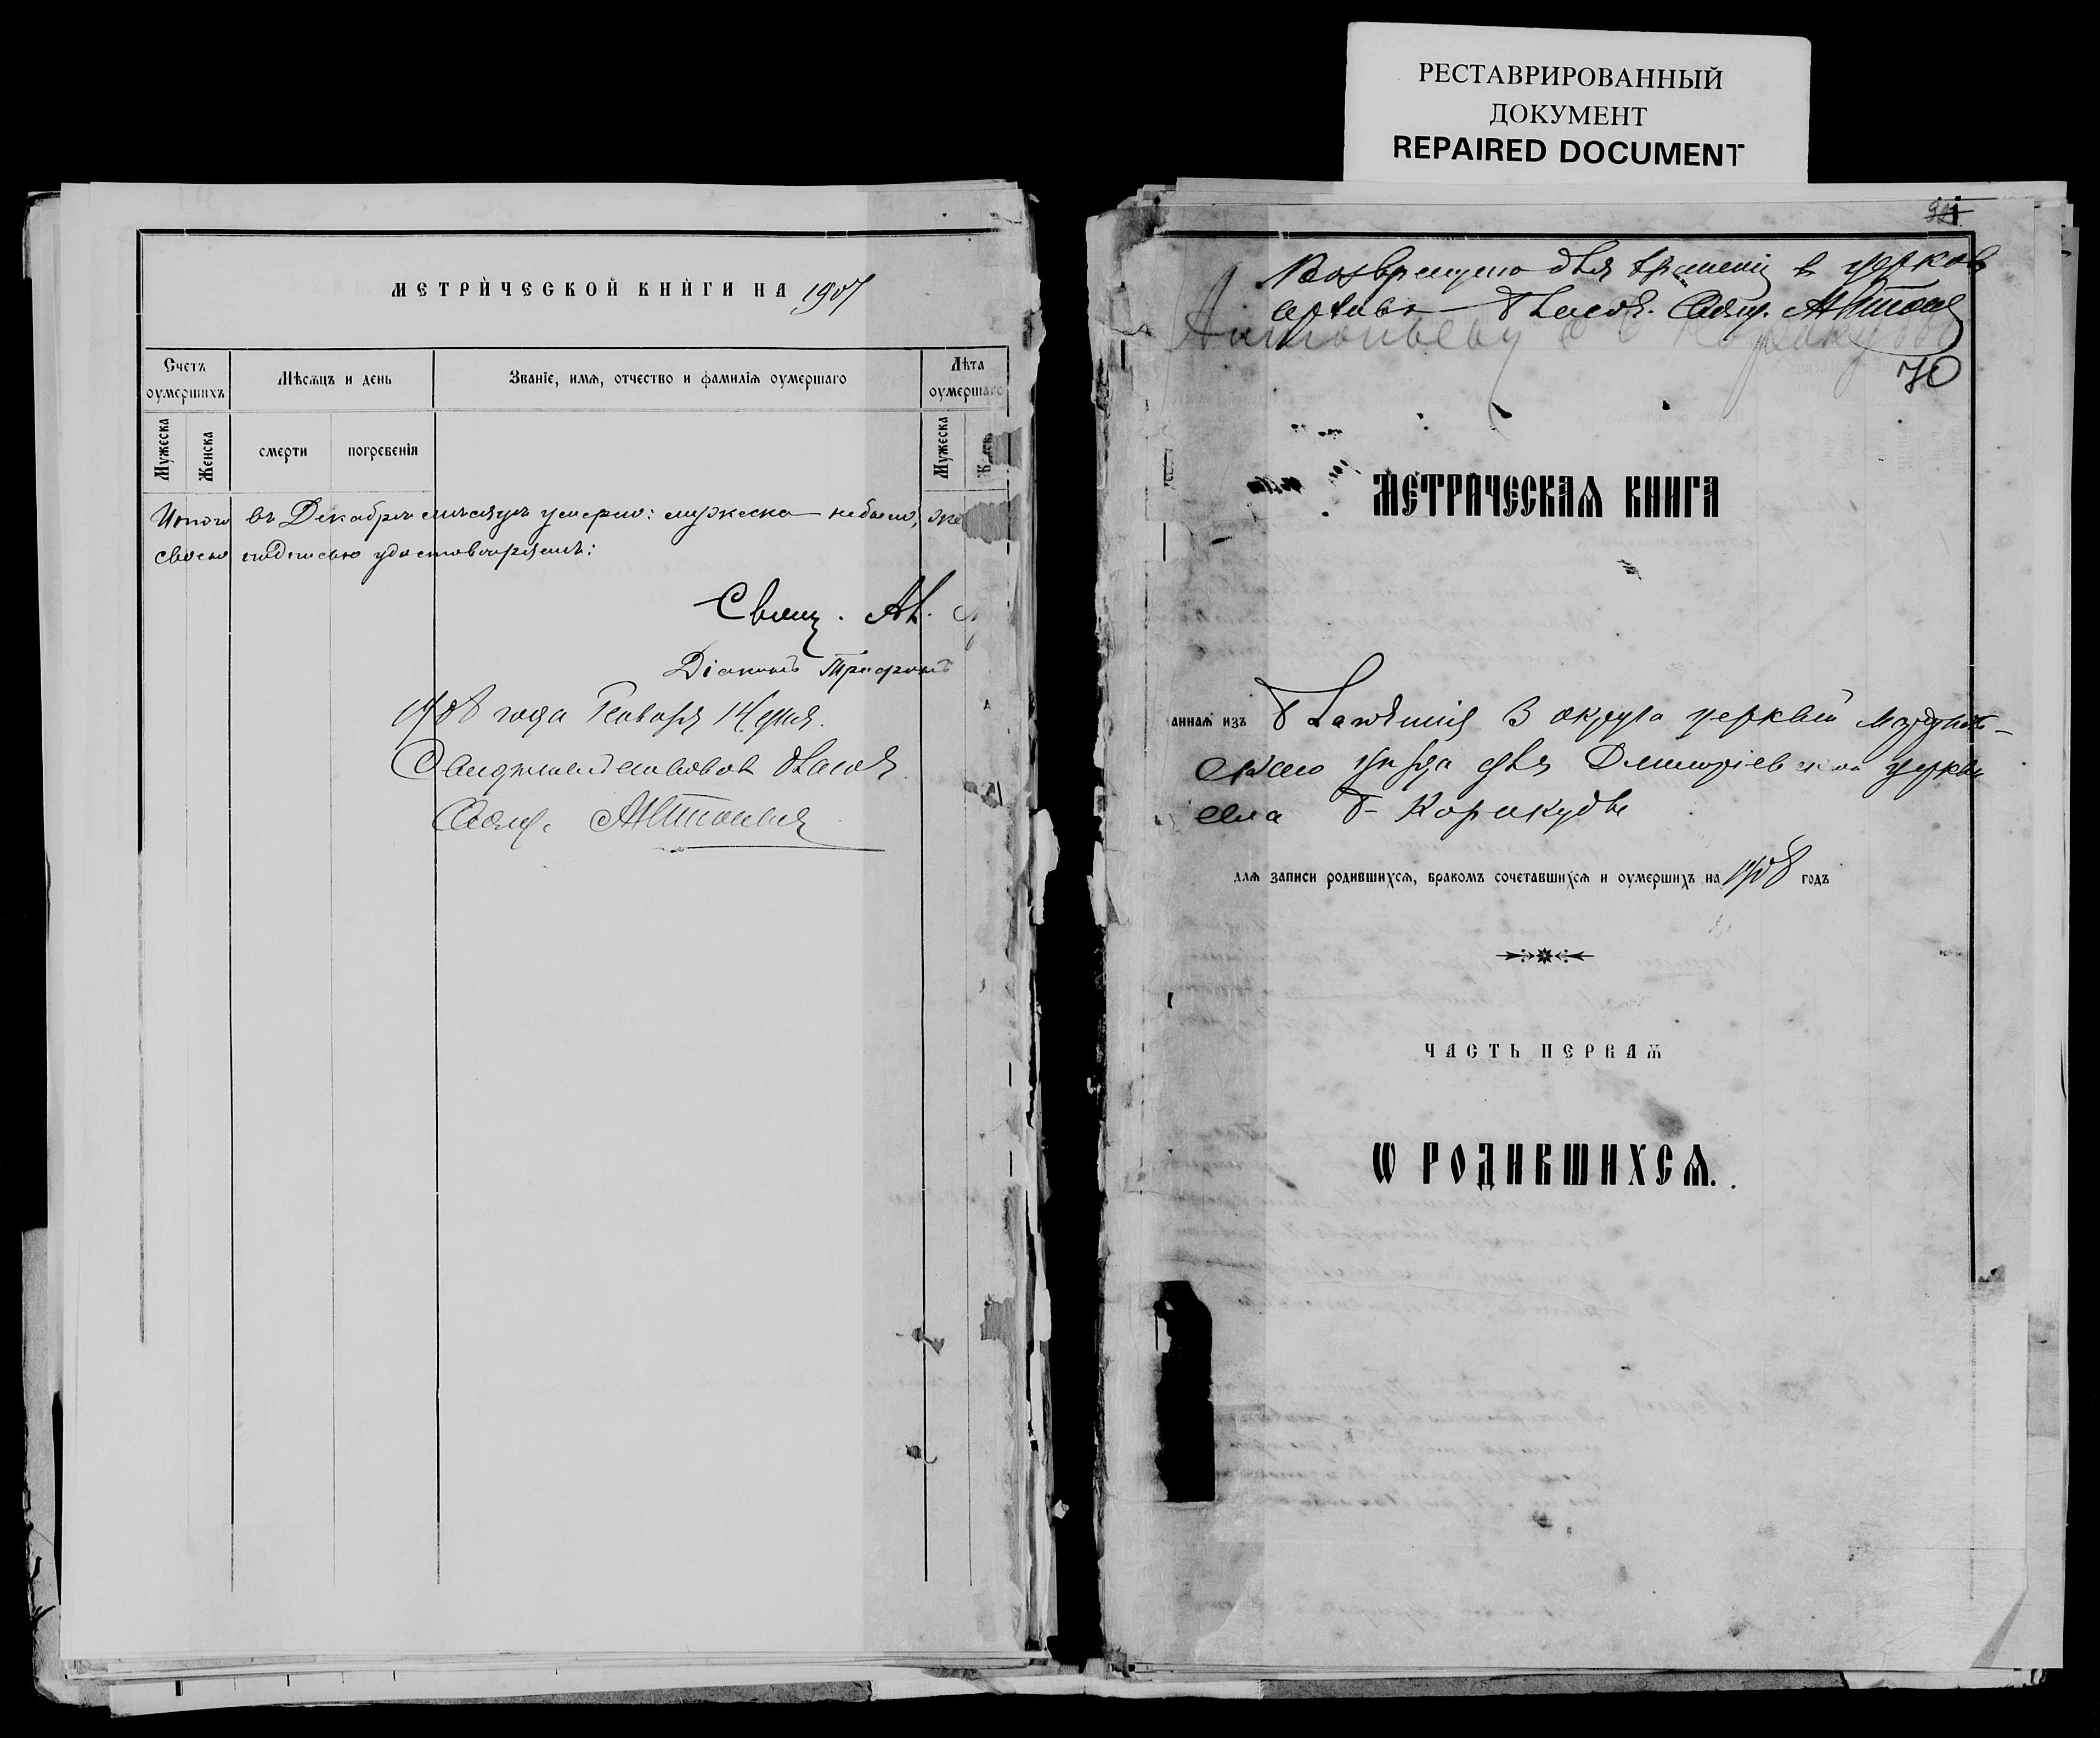 РЕСТАВРИРОВАННЫЙ
ДОКУМЕНТ
REPAIRED DOCUMENT
МЕТРИЧЕСКОЙ КНИГИ НА 1907
Счетъ оумершихъ
Мѣсѧцъ и день
Званїе, имѧ, отчество и фамилїѧ оумершаго
Лѣта оумершаго
Мужеска
Женска
смерти
погребенїѧ
Мужеска
Итого въ Декабрѣ мѣсяцѣ умерло: мужеска не было, же
свою подписью удостовѣряемъ:
Свящ. Ал.
Діаконъ Трифонъ
1908 года Генваря 14 дня.
Свидѣтельствовалъ Благоч.
Свящ.
Возвращено для храненія в церков
архивъ Благоч. Свящ.
70
МЕТРИЧЕСКАѦ КНИГА
аннаѧ изъ Благочинія 3 округа церквей
скаго уѣзда для Димитріевской церкви
села Б- Каракудъ
длѧ записи родившихсѧ, бракомъ сочетавшихсѧ и оумершихъ на 1908 годъ
ЧАСТЬ ПЕРВАѦ
Ѡ РОДИВШИХСѦ.